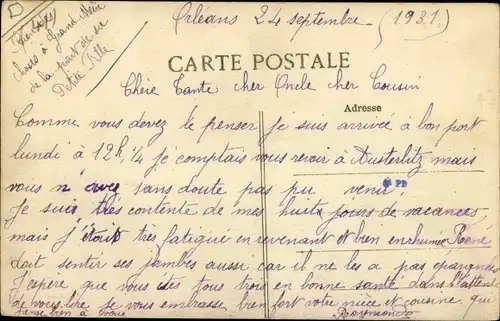 D
Orléans 24 septembre (1931)
choses à Grand Mère
de la part de sa
Petite Fille
CARTE POSTALE
Chère Tante cher Oncle cher Cousin
Adresse
Comme vous devez le penser je suis arrivée à bon port
lundi à 12h 1/4 je comptais vous revoir à Austerlitz mais
vous n'avez sans doute pas pu venir.
PB
je suis très contente de mes huit jours de vacances,
mais j'étais très fatigué en revenant et bien enrhumée René
doit sentir ses jambes aussi car il ne les a pas épargnées
J'espère que vous êtes tous trois en bonne santé dans l'attente
de vous lire je vous embrasse bien fort votre nièce et cousine qui
pense bien à vous
Raymonde